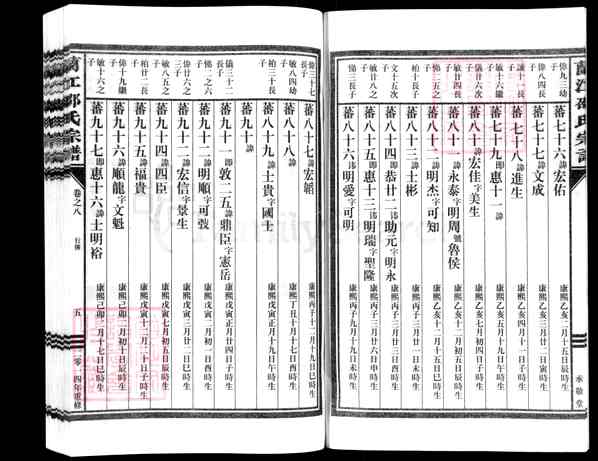 蘭江邵氏宗譜
偉九三幼子
蕃七十六諱宏佑
康熙乙亥二月十五日辰時生
偉八四長子
蕃七十七諱文成
康熙乙亥三月廿二日寅時生
諱十一長子
蕃七十八諱進生
康熙乙亥四月十一日子時生
敏十六繼子
蕃七十九即惠十一諱
康熙乙亥五月十九日午時生
儀廿六次子
蕃八十諱宏佳字美生
康熙乙亥七月初四日子時生
敏廿四長子
蕃八十一諱永泰字明周號魯侯
康熙乙亥十二月初五日辰時生
悌三五之子
蕃八十二諱明杰字可知
康熙乙亥十二月十五日巳時生
柏三十長子
蕃八十三諱士彬
康熙丙子三月廿一日未時生
文十五次子
蕃八十四即恭廿二諱助元字明永
康熙丙子三月廿三日亥時生
敏廿八之子
蕃八十五即惠十三諱明瑞字聖隆
康熙丙子三月廿六日申時生
悌三三長子
蕃八十六諱明愛字可明
康熙丙子九月十九日未時生
偉三十七長子
蕃八十七諱宏韜
康熙丙子十二月十九日巳時生
敏八四幼子
蕃八十八諱
康熙丁丑十月十七日酉時生
柏三十長子
蕃八十九諱士貴字國士
康熙戊寅正月十九日午時生
蕃九十諱
儀三十二子
蕃九十一即敦二五諱鼎臣字憲岳
康熙戊寅正月廿四日子時生
悌二之六子
蕃九十二諱明順字可弢
康熙戊寅二月初二日酉時生
偉二六三子
蕃九十三諱宏信字景生
康熙戊寅三月廿二日巳時生
敏八五之子
蕃九十四諱四臣
康熙戊寅七月初五日辰時生
柏廿二長子
蕃九十五諱福貴
康熙戊寅十二月二十日子時生
偉十九繼子
蕃九十六諱順龍字文魁
康熙己卯二月初十日辰時生
敏十六之子
蕃九十七即惠十六諱士明裕
康熙己卯二月十七日巳時生
承敬堂
蘭江邵氏宗譜
卷之八
行傳
五
二〇一四年重修